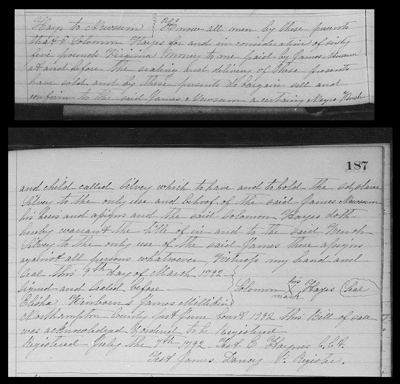 Hays to Newsum } Know all men by these presents
that I Solomon Hayes for and in consideration of sixty
five pounds Virginia Money to me paid by James Newsum
at and before the sealing and delivery of these presents
have sold and by these presents do bargain sell and
confirm to the said James Newsum a certain Negro Wench
187
and child called Silvey which to have and to hold the sd slave
Silvey to the only use and behoof of the said James Newsum
his heirs and assigns and the said Solomon Hayes doth
hereby warrant the title of in and to the said Wench
Silvey to the only use of the said James these assigns
against all persons whatsoever. Witness my hand and
seal this 9th day of March 1792
Signed and sealed before Solomon his mark Hayes Seal
James
Northampton County Sct June Court 1792 This Bill of sale
was acknowledged Ordered to be Registered
Registered July the 7th 1792. Test E Haynes C.C.
Test James Dancy P. Register.